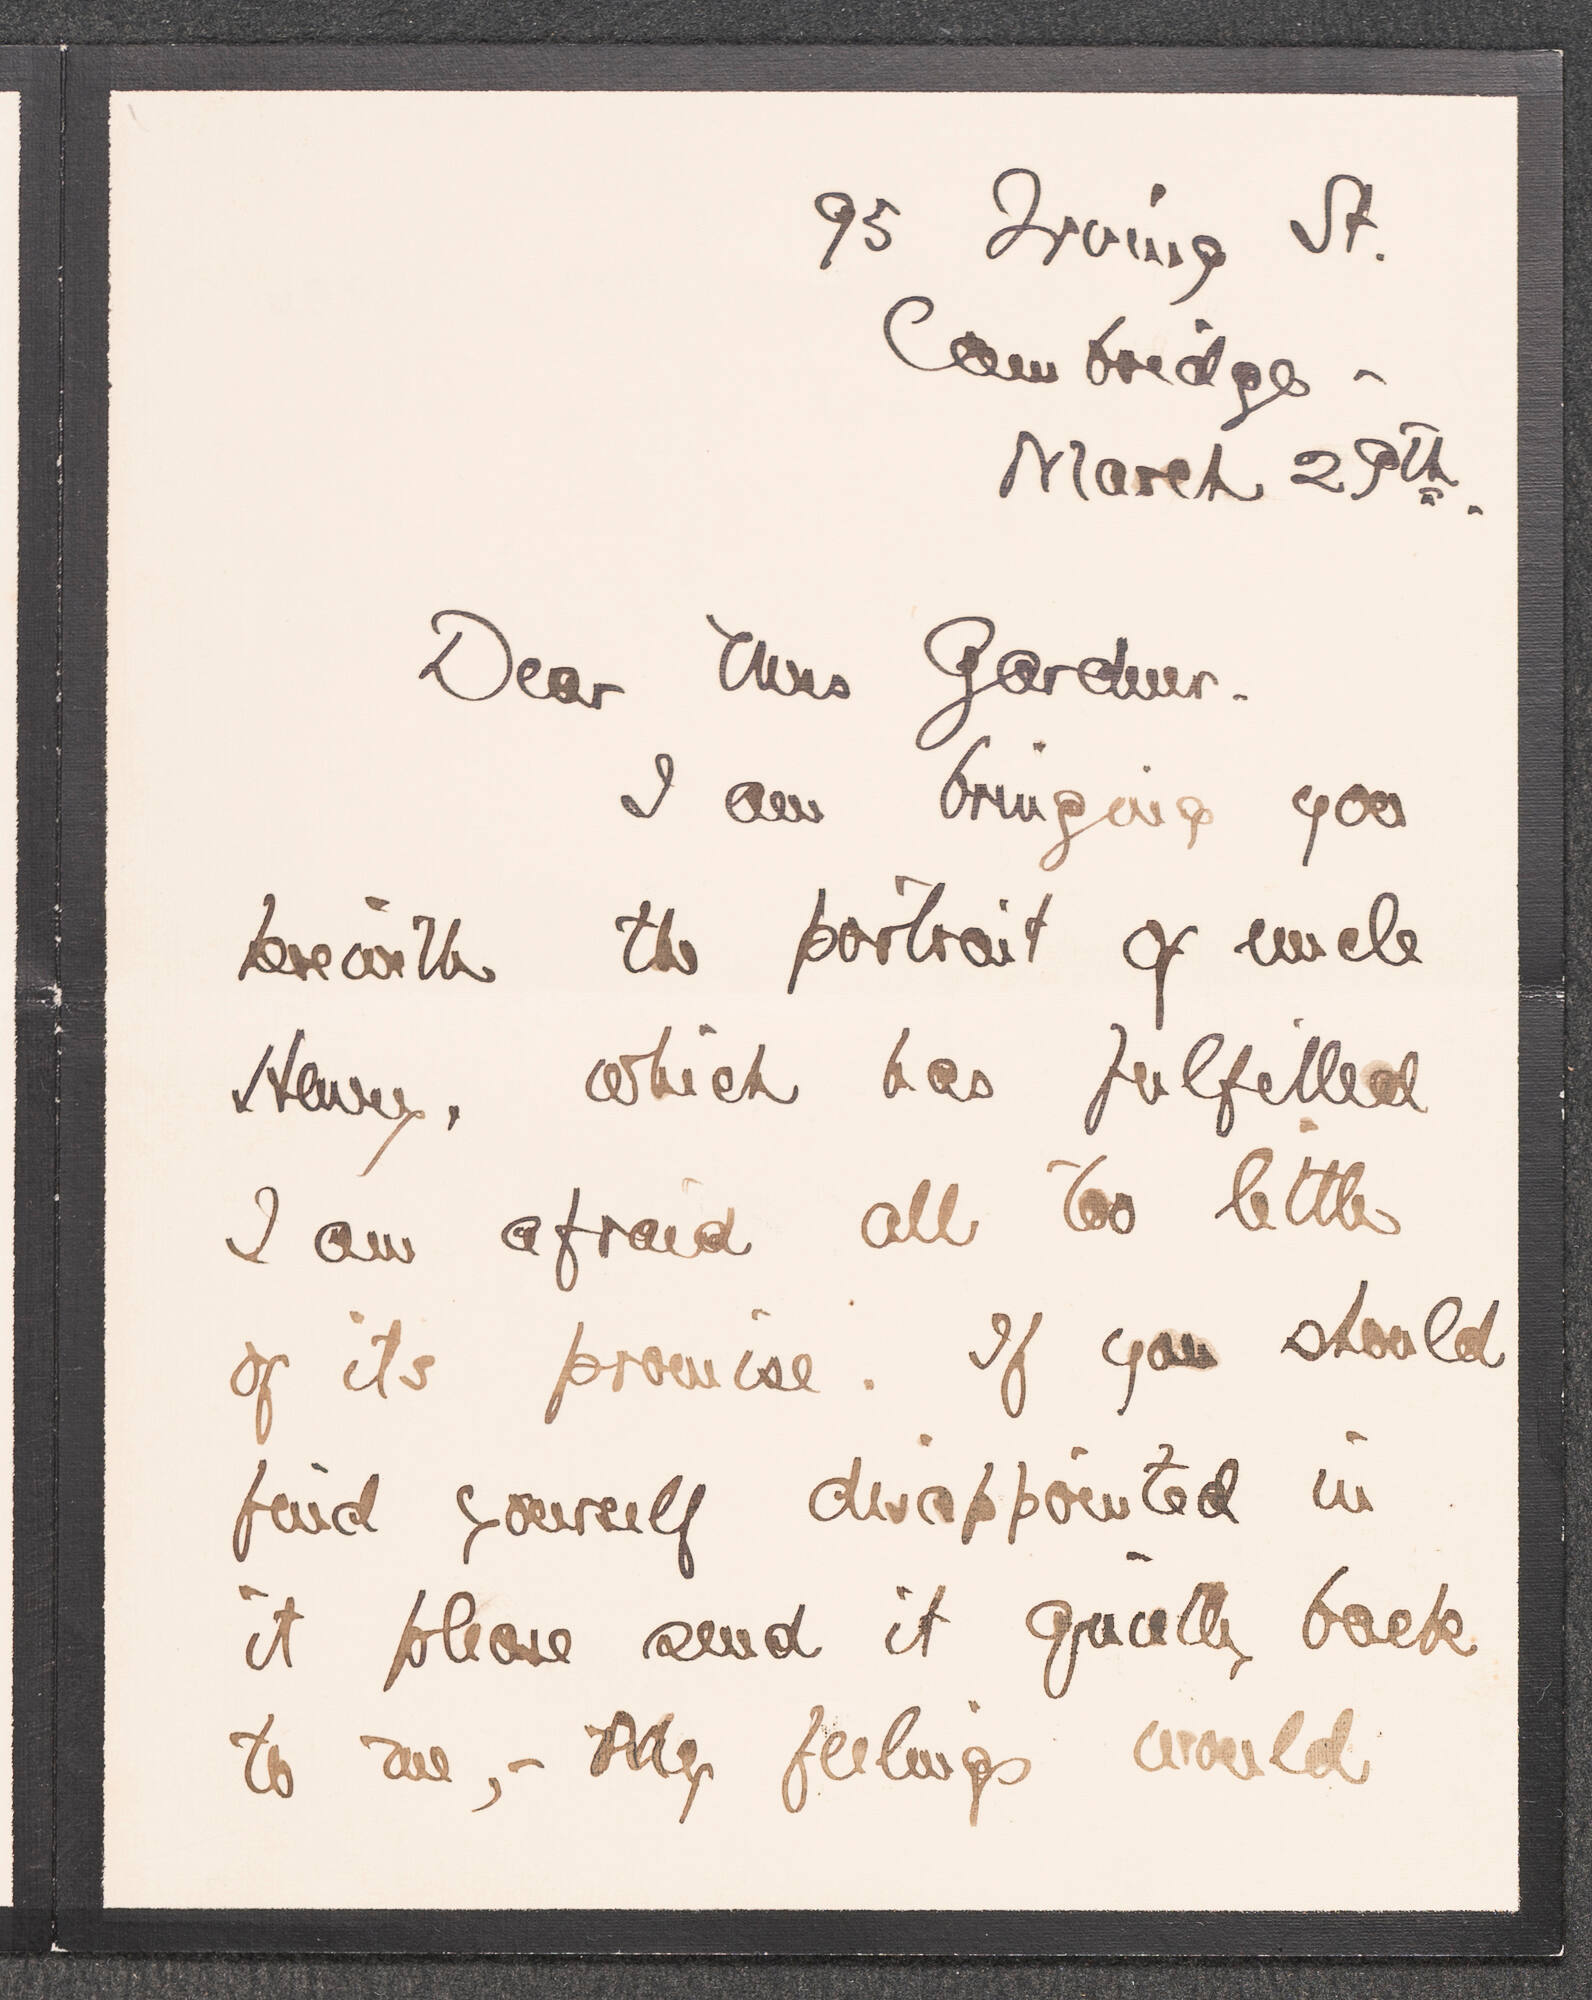 95 Irving St.
Cambridge -
March 29th.
Dear Mrs Gardner.
I am bringing you
herewith the portrait of uncle
Henry, which has fulfilled
I am afraid all too little
of its promise. If you should
find yourself disappointed in
it please send it quietly back
to me, - My feelings would